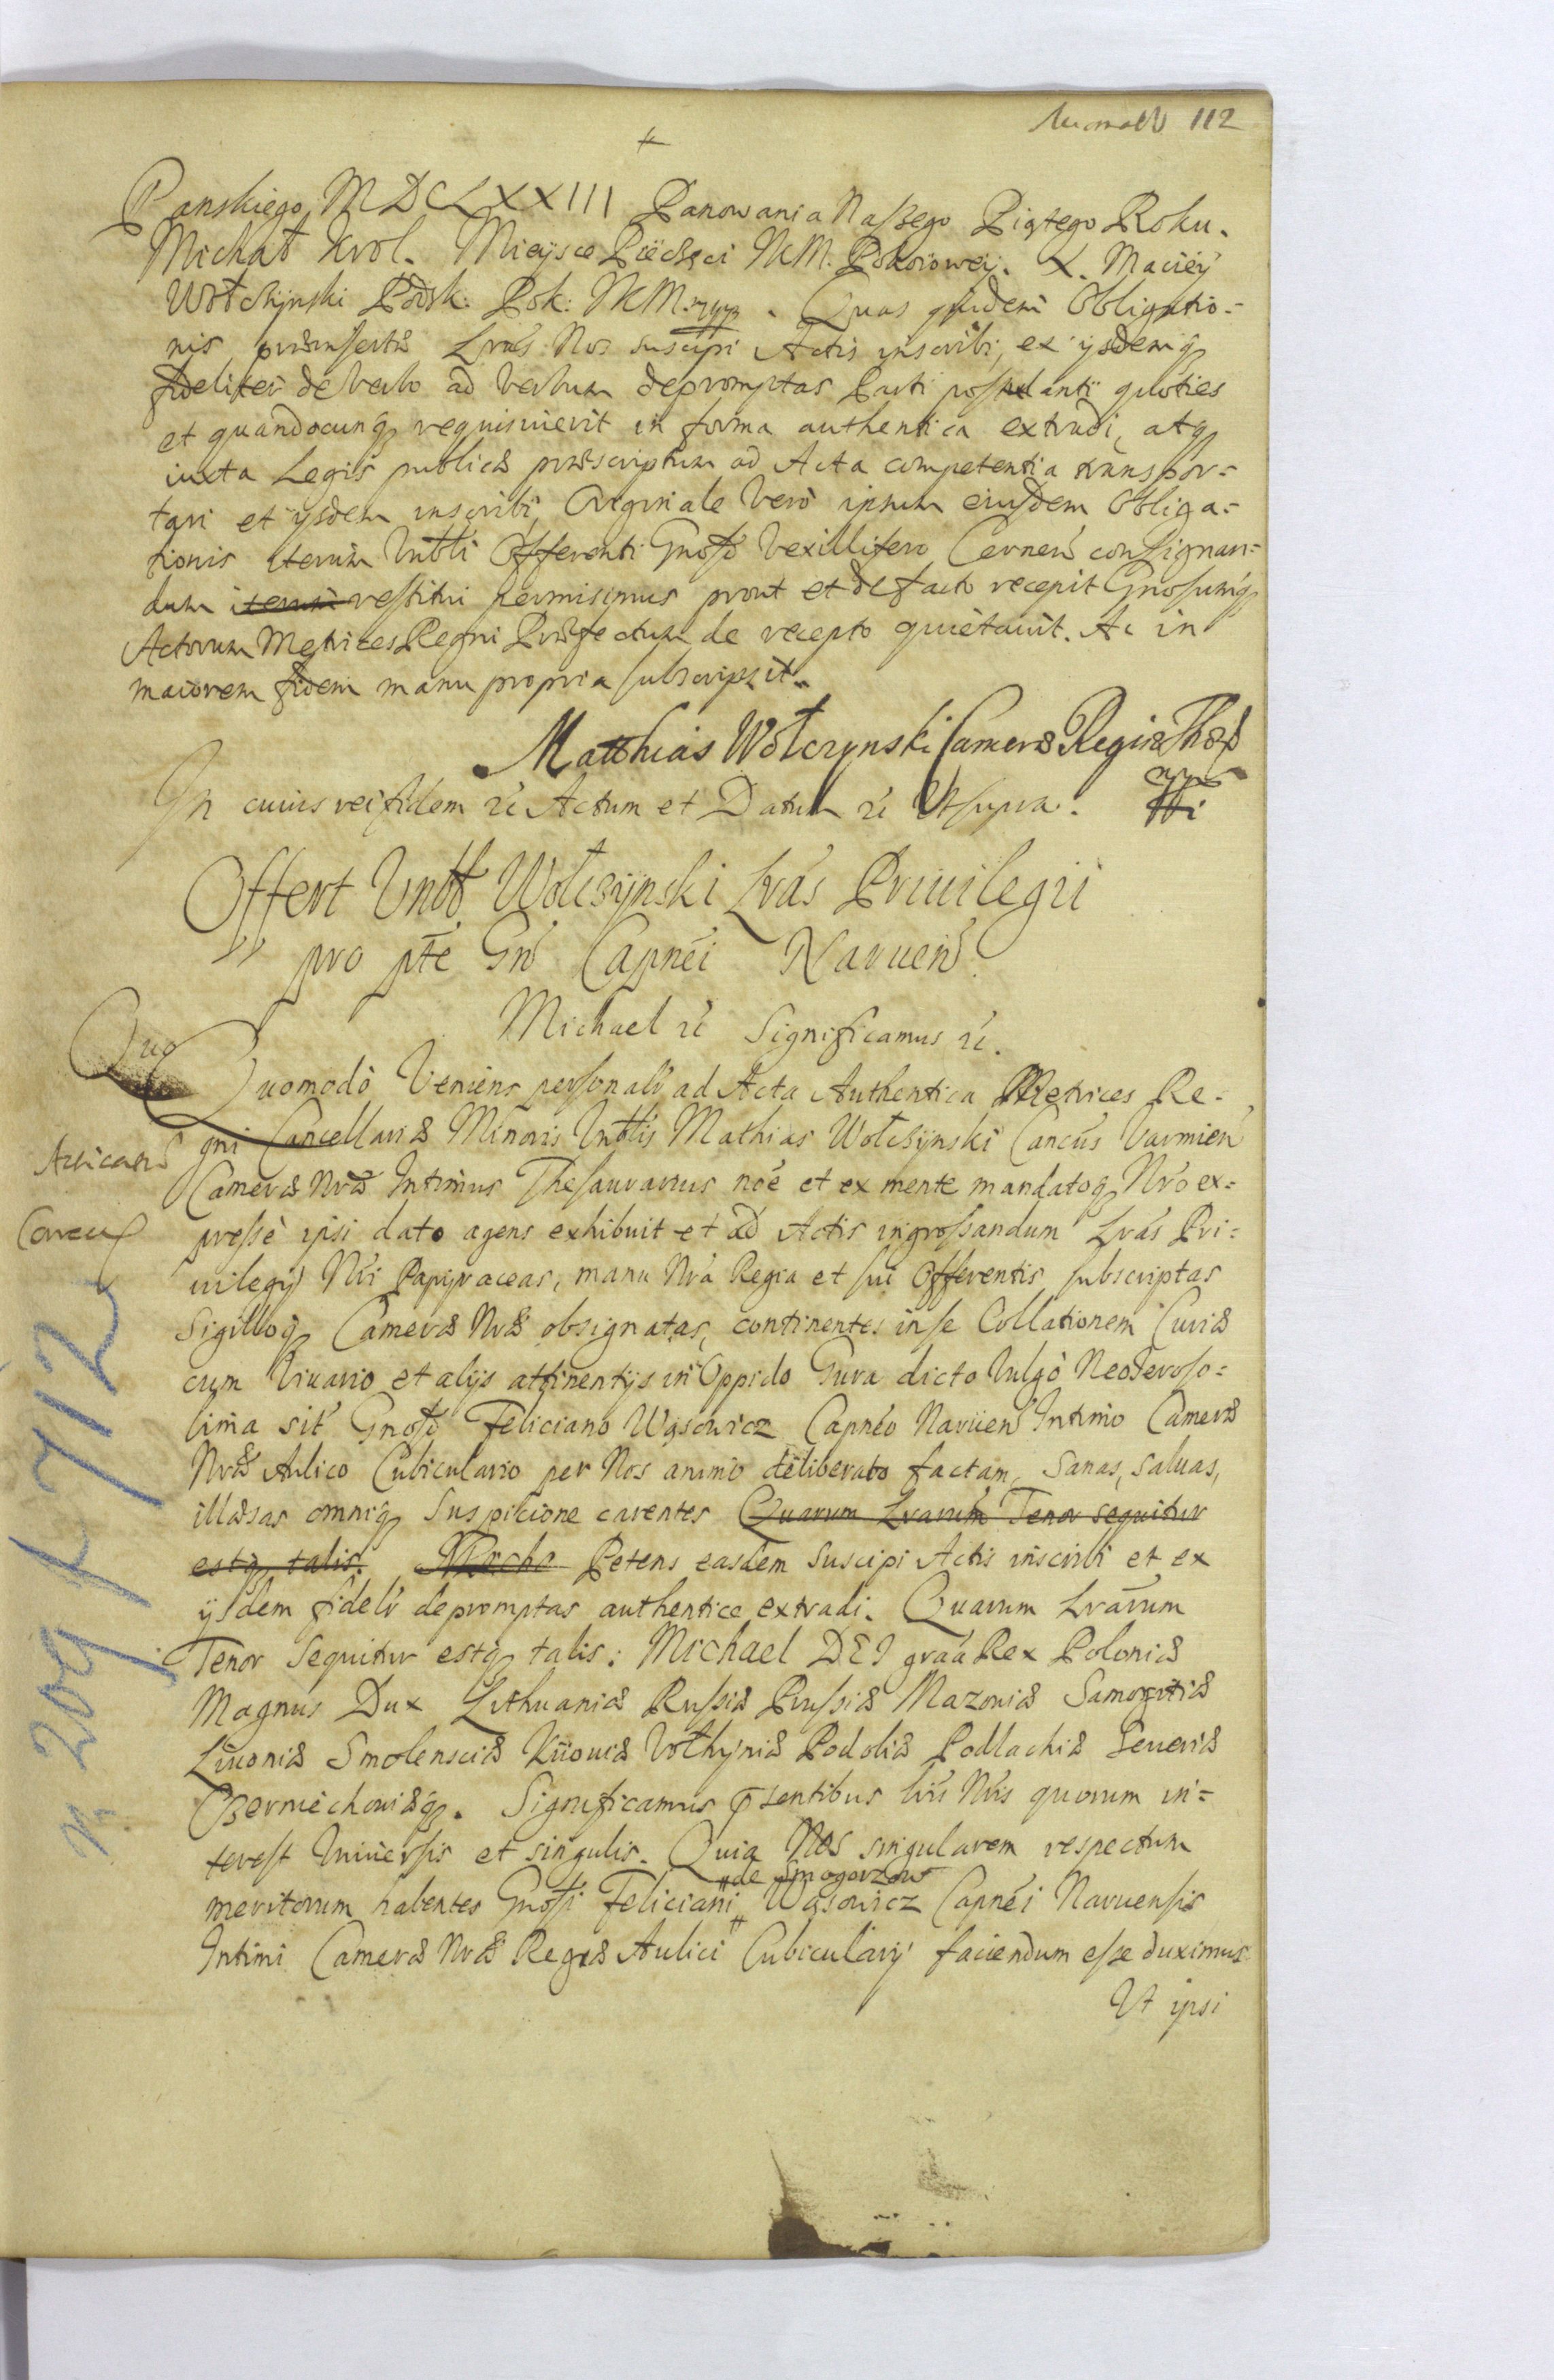 112
Panskiego MDCLXXIII Panowania Naszego Piątego Roku.
Michał Krol. Mieysce Pieczęci NKM. Pokoiowey. X. Maciéy
Wołczynski Podsk: Pok: NKM. Quas quidem Obligatio=
nis præinsertas Lrãs Nos suscipi Actis inscribi, ex ijsdemq
fideliter de verbo ad verbum depromptas Parti postulanti quoties
et quandocunq requisiuerit in forma authentica extradi, atq
iuxta Legis publicæ præscriptum ad Acta competentia transpor=
tari et ijsdem inscribi, Originale verò ipsum eiusdem Obliga=
tionis iterum Vnbli Offerenti Gnoso Vexillifero Cernen consignan=
dum iterum restitui permisimus prout et de facto recepit Gnosumq
Actorum Metrices Regni Præfectum de recepto quietauit. Ac in
maiorem fidem manu propria subscripsit.
Matthias Wołczynski Cameræ Regiæ Thes
In cuius rei fidem ec Actum et Datum ec Vt supra.
Offert Vnbl Wołczynski Lrãs Priuilegii
pro pte Gn Capnei Naruen
Michael ec Significamus ec.
Quo
Quomodò Veniens personalr ad Acta Authentica Metrices Re=
gni Cancellariæ Minoris Vnblis Mathias Wołczynski Cancus Varmien
Cameræ Nræ Intimus Thesaurarius noe et ex mente mandatoq Nro ex=
pressè ipsi dato agens exhibuit et ad Actis ingrossandum Lrãs Pri=
uilegij Nri Papyraceas, manu Nra Regia et sui Offerentis subscriptas
Sigilloq Cameræ Nræ obsignatas, continentes in se Collationem Curiæ
cum Viuario et alijs attinentijs in Oppido Gura dicto Vulgò Neoieroso=
lima sit Gnoso Feliciano Wąsowicz Capneo Naruen Intimo Cameræ
Nræ Aulico Cubiculario per Nos animo deliberato factam, Sanas, Saluas,
illæsas omniq Suspicione carentes Quarum Lrarum Tenor sequitur
estq talis. Petens easdem Suscipi Actis inscribi et ex
ijsdem fidelr depromptas authentice extradi. Quarum Lrarum
Tenor Sequitur estq talis: Michael DEI graã Rex Poloniæ
Magnus Dux Lithuaniæ Russiæ Prussiæ Mazouiæ Samogitiæ
Liuoniæ Smolensciæ Kiiouiæ Vołhyniæ Podoliæ Podlachiæ Seueriæ
Czerniechouiæq. Significamus pñtentibus lris Nris quorum in=
terest Vniuersis et singulis. Quia Nos singularem respectum
de Smogorzow
meritorum habentes Gnosi Feliciani Wąsowicz Capnei Naruensis
Intimi Cameræ Nræ Regiæ Aulici Cubicularij faciendum esse duximus
Vt ipsi